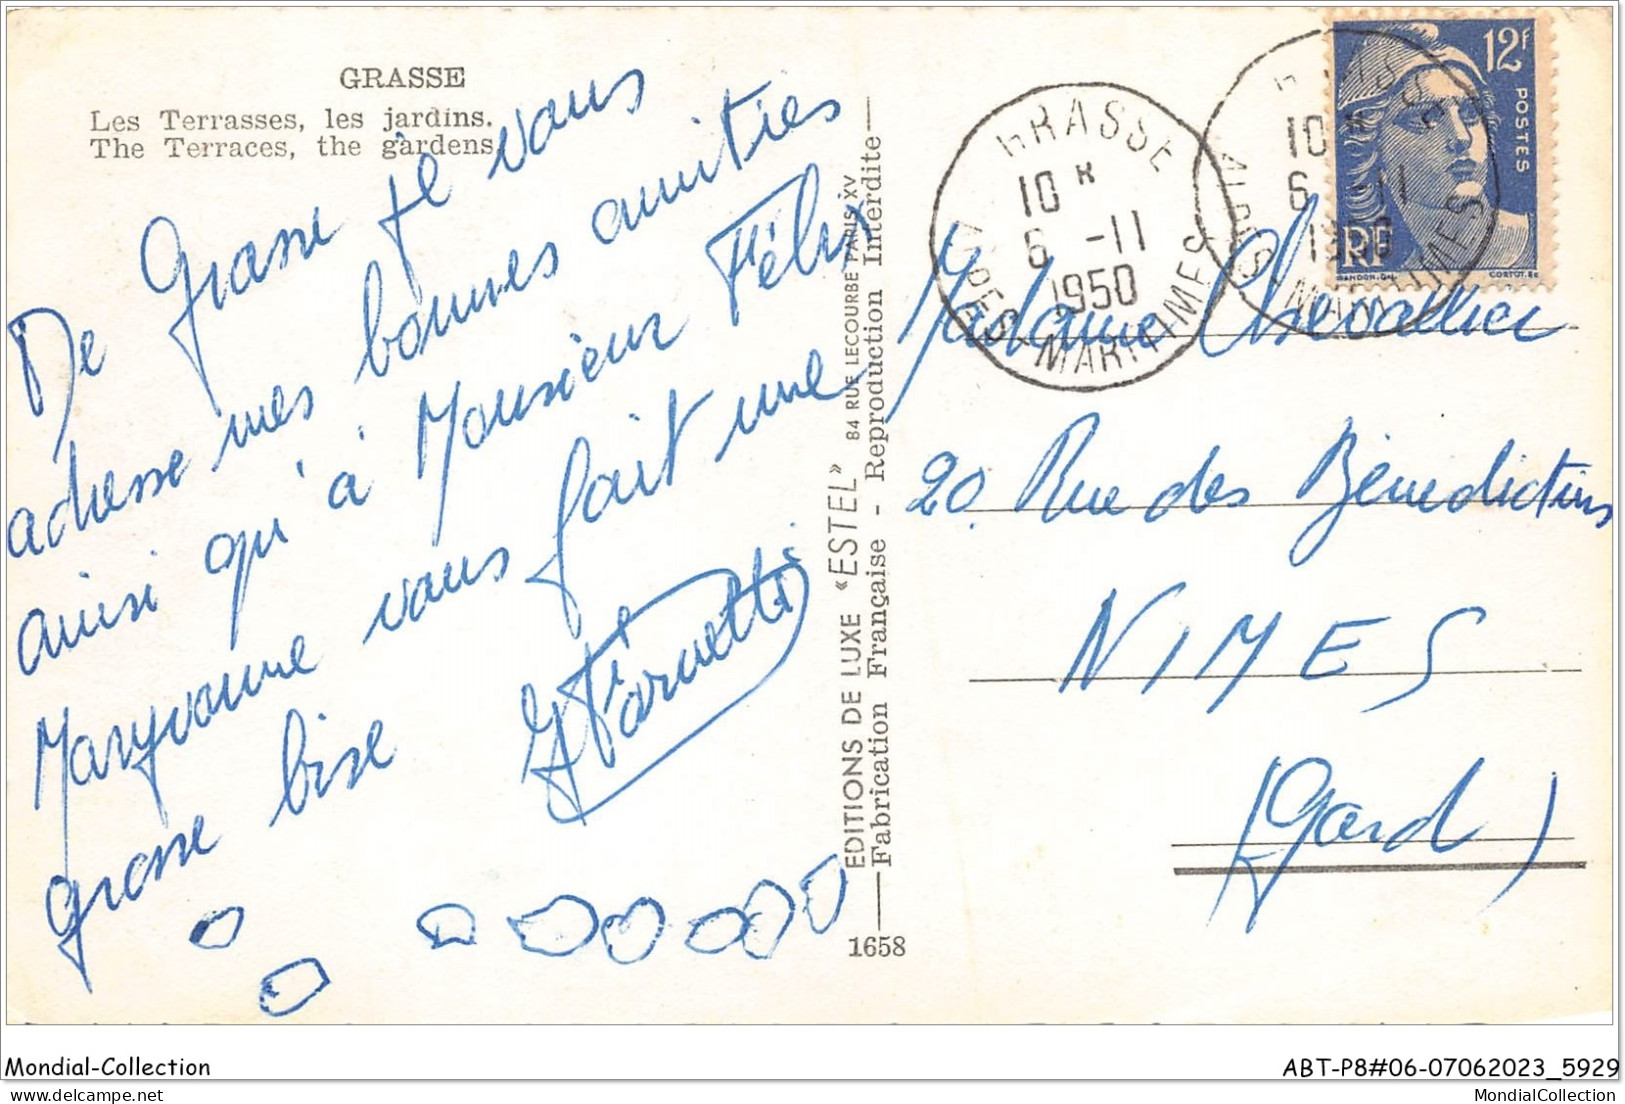 GRASSE
Les Terrasses, les jardins.
The Terraces, the gardens.
De Grasse je vous
adresse mes bonnes amitiés
ainsi qu'à Monsieur Félix
Maryvonne vous fait une
grosse bise
EDITIONS DE LUXE "ESTEL" 84 RUE LECOURBE PARIS XV
Fabrication Française - Reproduction Interdite
1658
GRASSE
10 H
6 -11
1950
ALPES-MARITIMES
GRASSE
10 H
6 -11
1950
ALPES-MARITIMES
12F
POSTES
RF
GANDON.DEL.
CORTOT.Sc
Madame Chevallier
20. Rue des Bénédictins
NIMES
(Gard)
Mondial-Collection
ABT-P8#06-07062023_5929
www.delcampe.net
MondialCollection